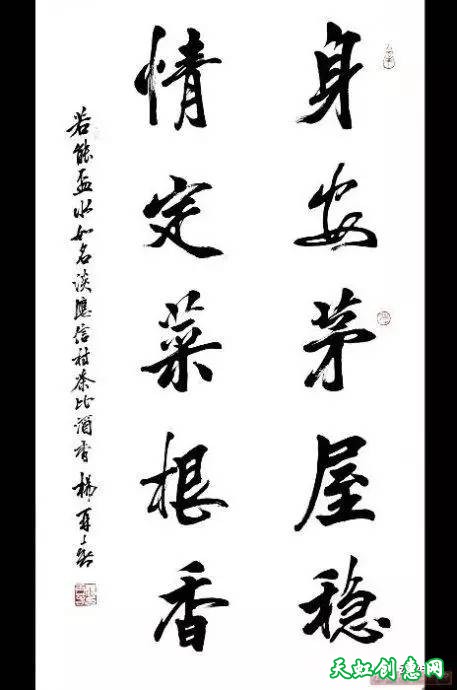 身安茅屋稳
情定菜根香
若能盃水如名淡應信村茶比酒香 楊再春
天虹创意网